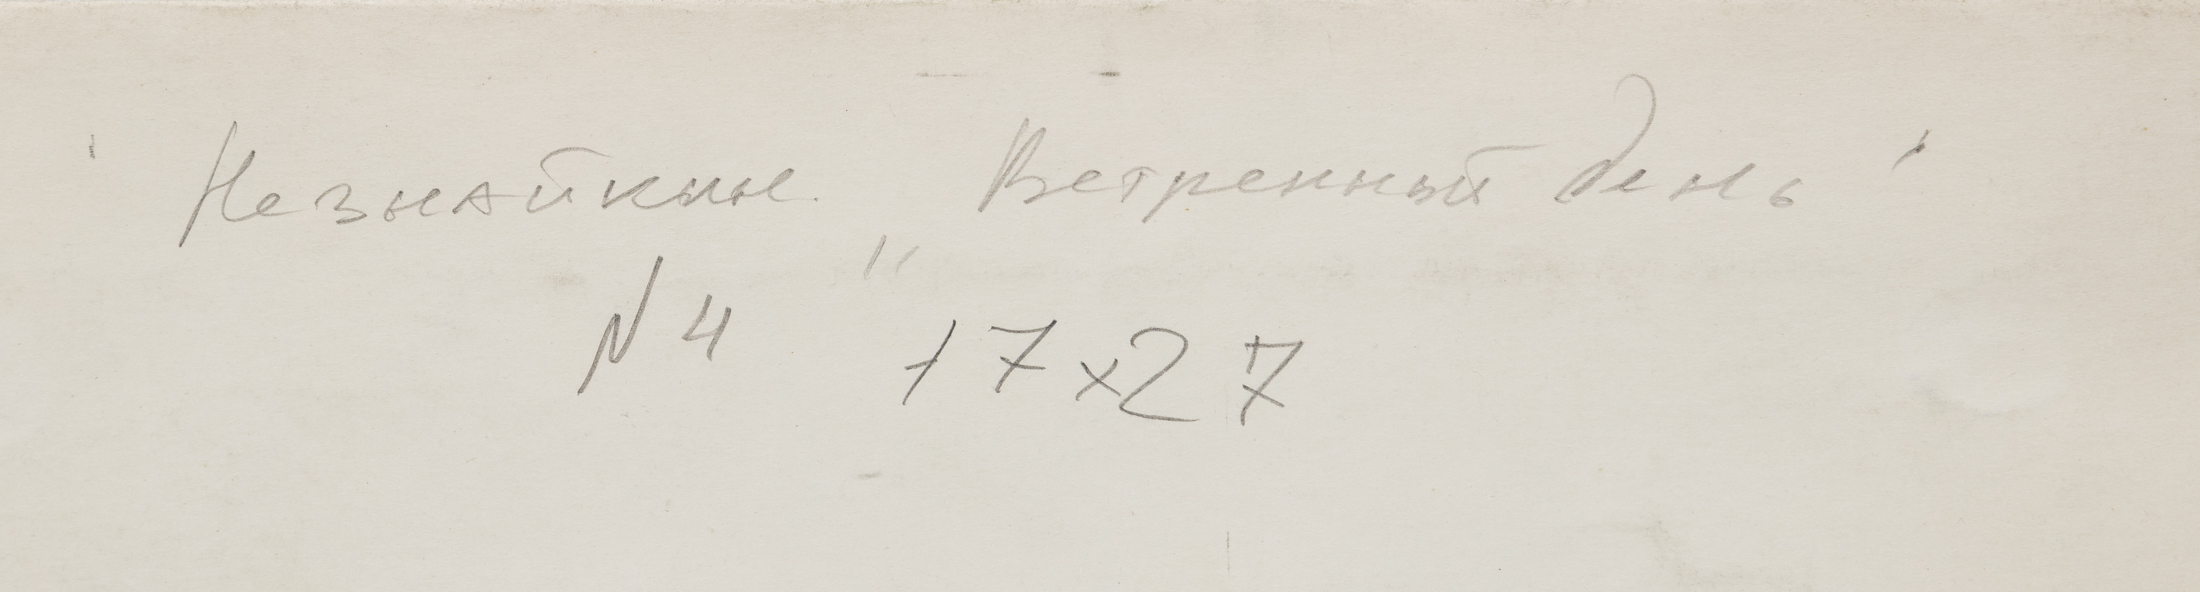 ' Незнайкин. „Ветренный день"
N 4 17x27